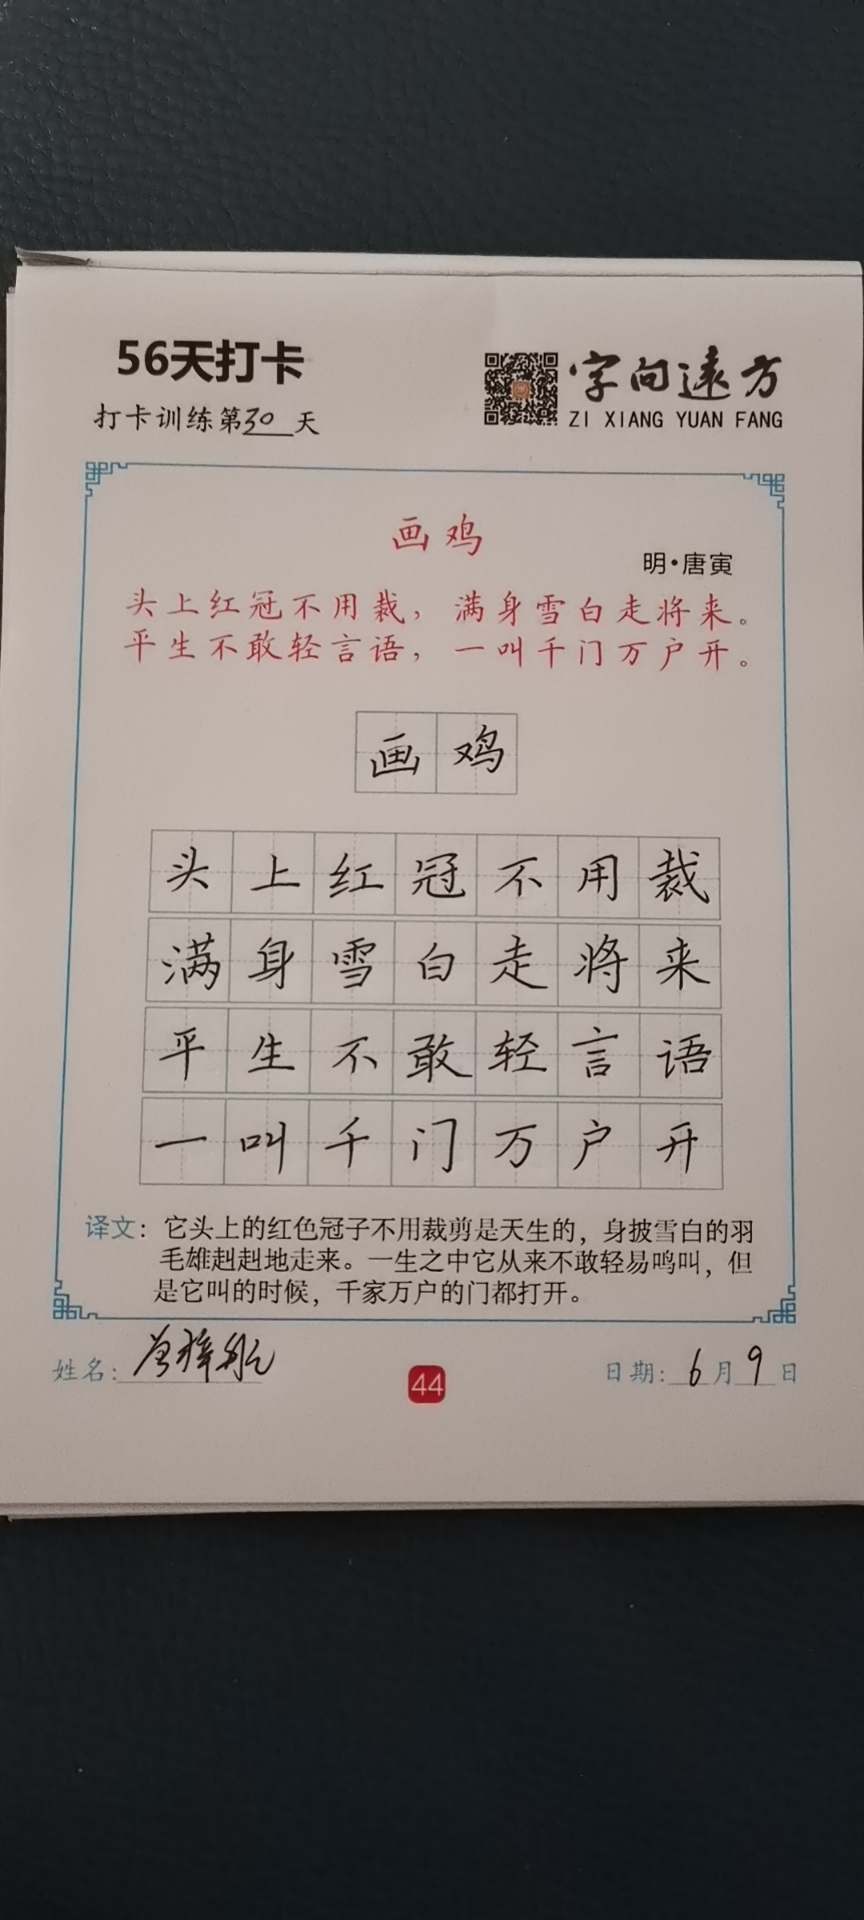 56天打卡
打卡训练第30天
字向远方
ZI XIANG YUAN FANG
画鸡
明·唐寅
头上红冠不用裁，满身雪白走将来。
平生不敢轻言语，一叫千门万户开。
画鸡
头上红冠不用裁
满身雪白走将来
平生不敢轻言语
一叫千门万户开
译文：它头上的红色冠子不用裁剪是天生的，身披雪白的羽
毛雄赳赳地走来。一生之中它从来不敢轻易鸣叫，但
是它叫的时候，千家万户的门都打开。
姓名：
44
日期：6月9日